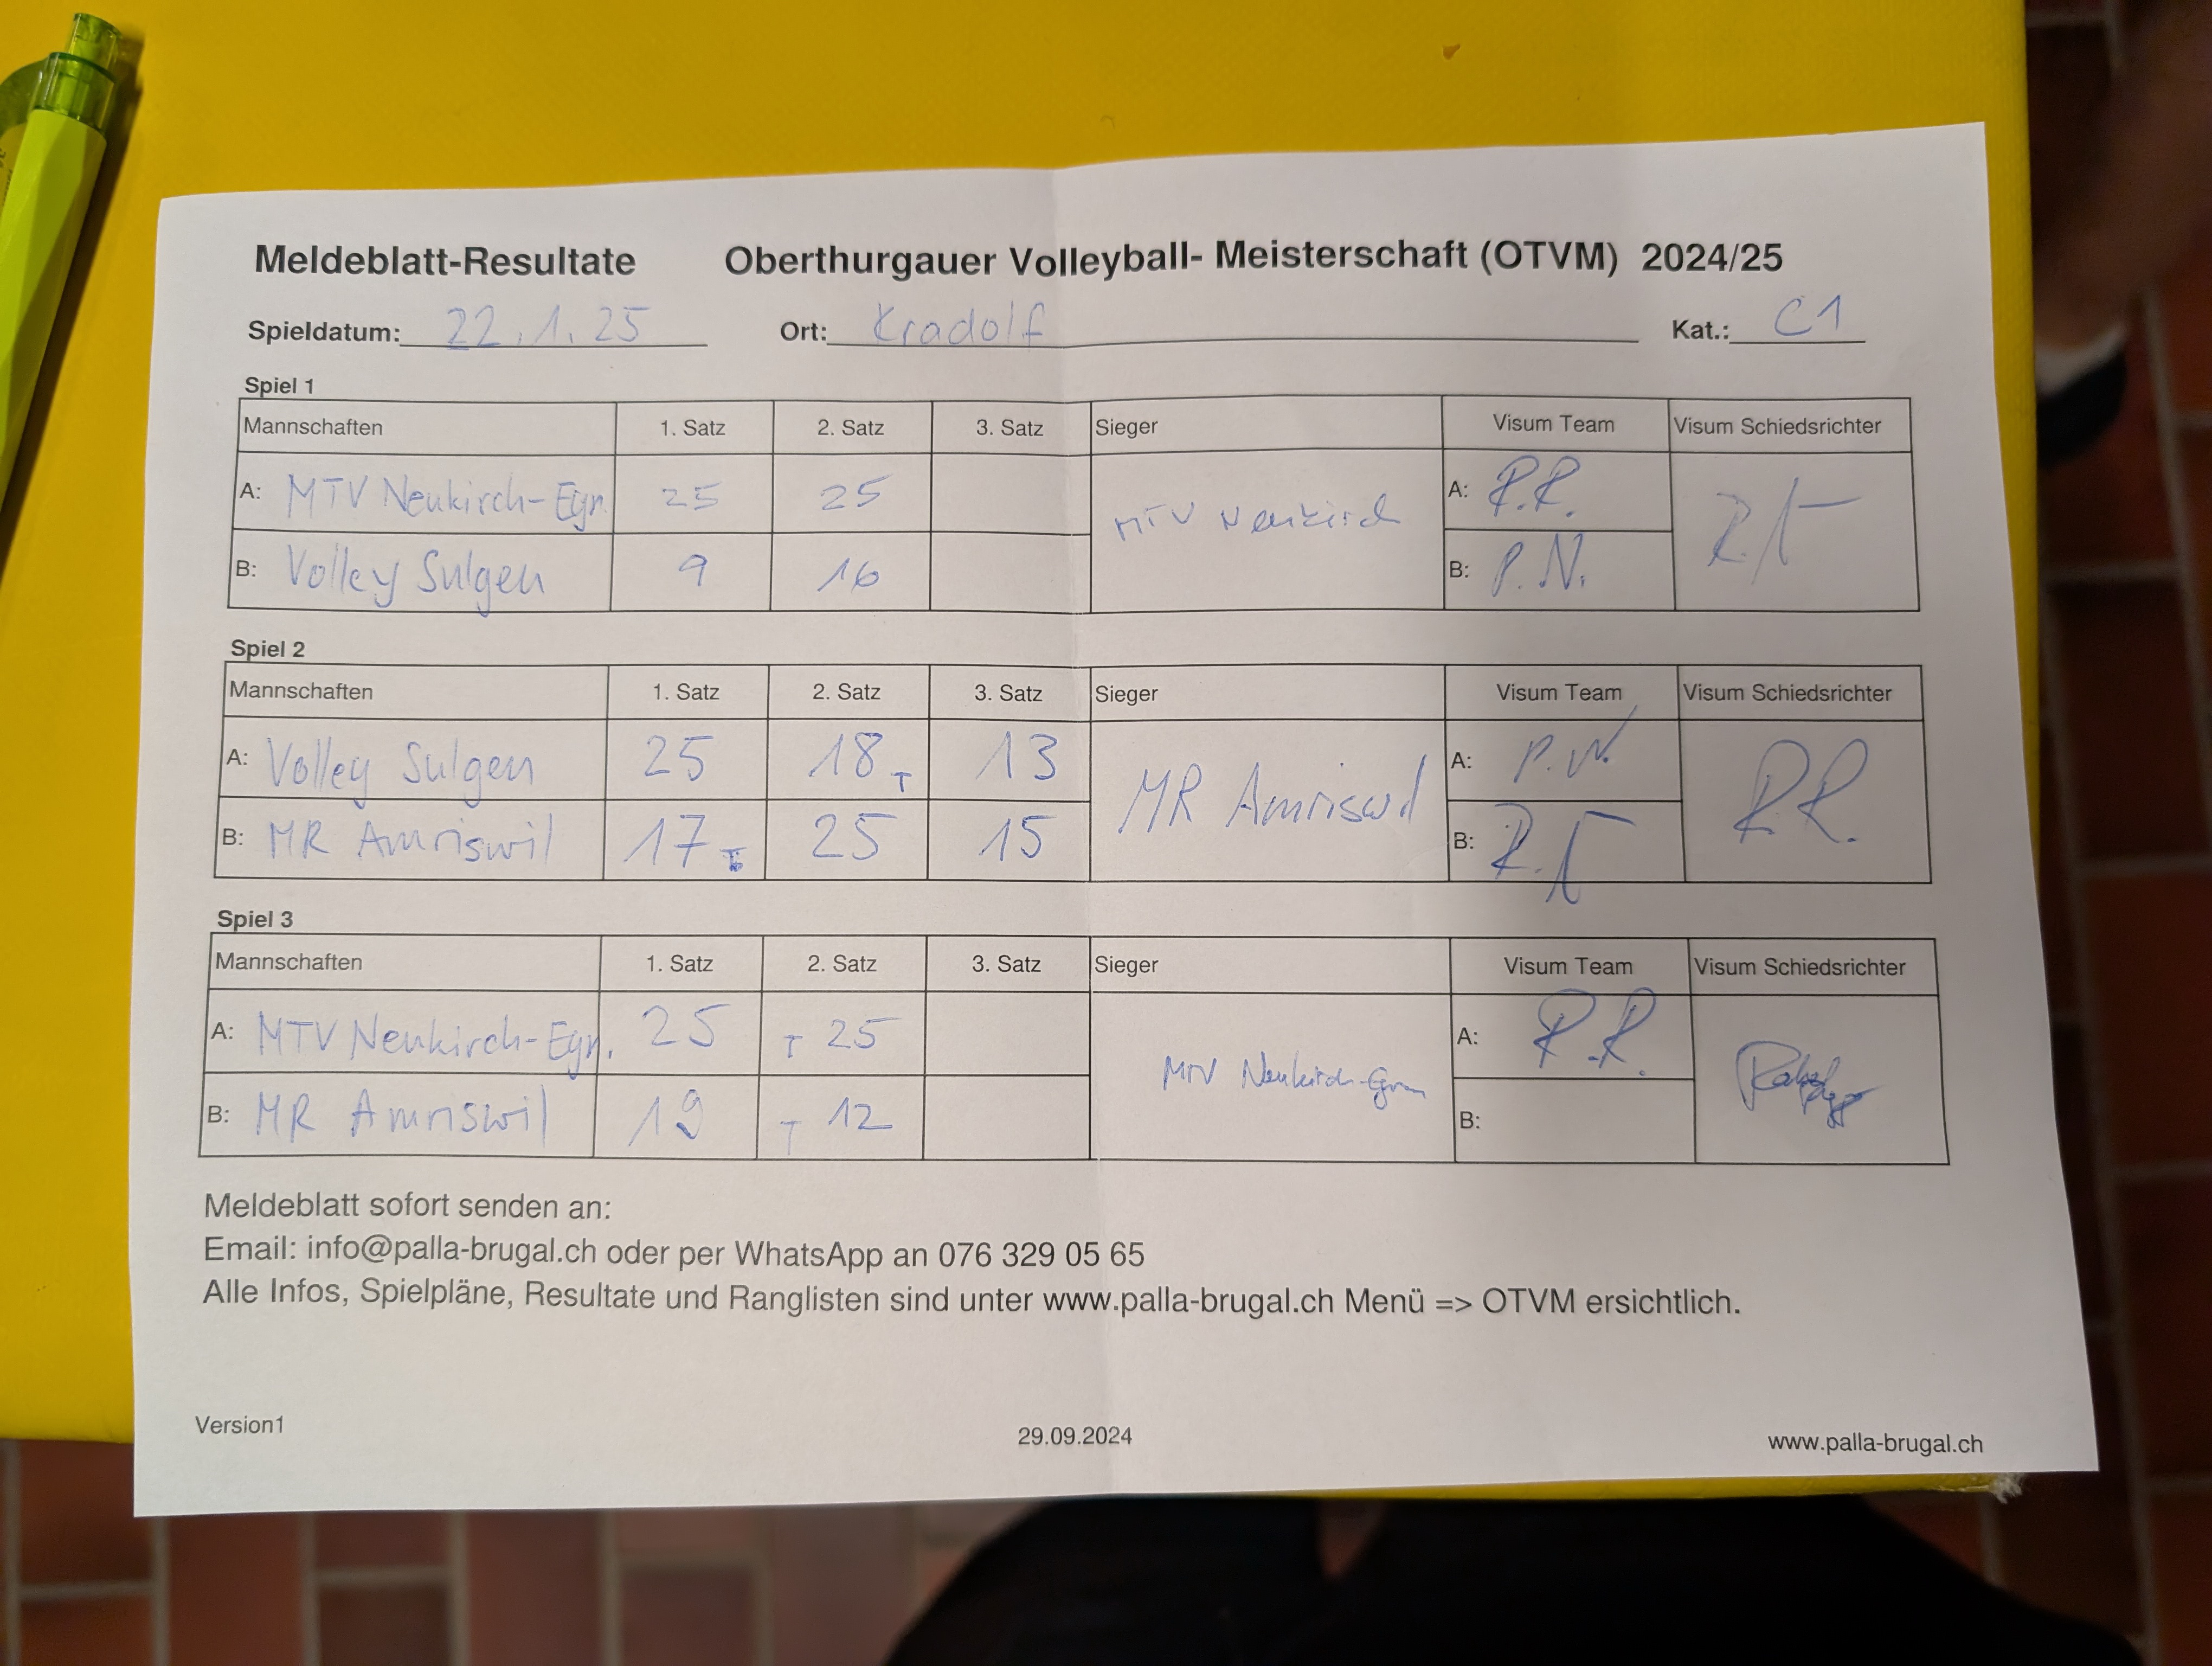 Meldeblatt-Resultate Oberthurgauer Volleyball- Meisterschaft (OTVM) 2024/25
Spieldatum: 22.1.25 Ort: Kradolf Kat.: C1
Spiel 1
Mannschaften 1. Satz 2. Satz 3. Satz Sieger Visum Team Visum Schiedsrichter
A: MTV Neukirch-Egn. 25 25 MTV Neukirch A: R.R.
B: Volley Sulgen 9 16 B: P.N.
Spiel 2
Mannschaften 1. Satz 2. Satz 3. Satz Sieger Visum Team Visum Schiedsrichter
A: Volley Sulgen 25 18 T 13 MR Amriswil A: P.N. R.R.
B: MR Amriswil 17 T 25 15 B:
Spiel 3
Mannschaften 1. Satz 2. Satz 3. Satz Sieger Visum Team Visum Schiedsrichter
A: MTV Neukirch-Egn. 25 T 25 MTV Neukirch-Egn A: R.R.
B: MR Amriswil 19 T 12 B:
Meldeblatt sofort senden an:
Email: info@palla-brugal.ch oder per WhatsApp an 076 329 05 65
Alle Infos, Spielpläne, Resultate und Ranglisten sind unter www.palla-brugal.ch Menü => OTVM ersichtlich.
Version1 29.09.2024 www.palla-brugal.ch